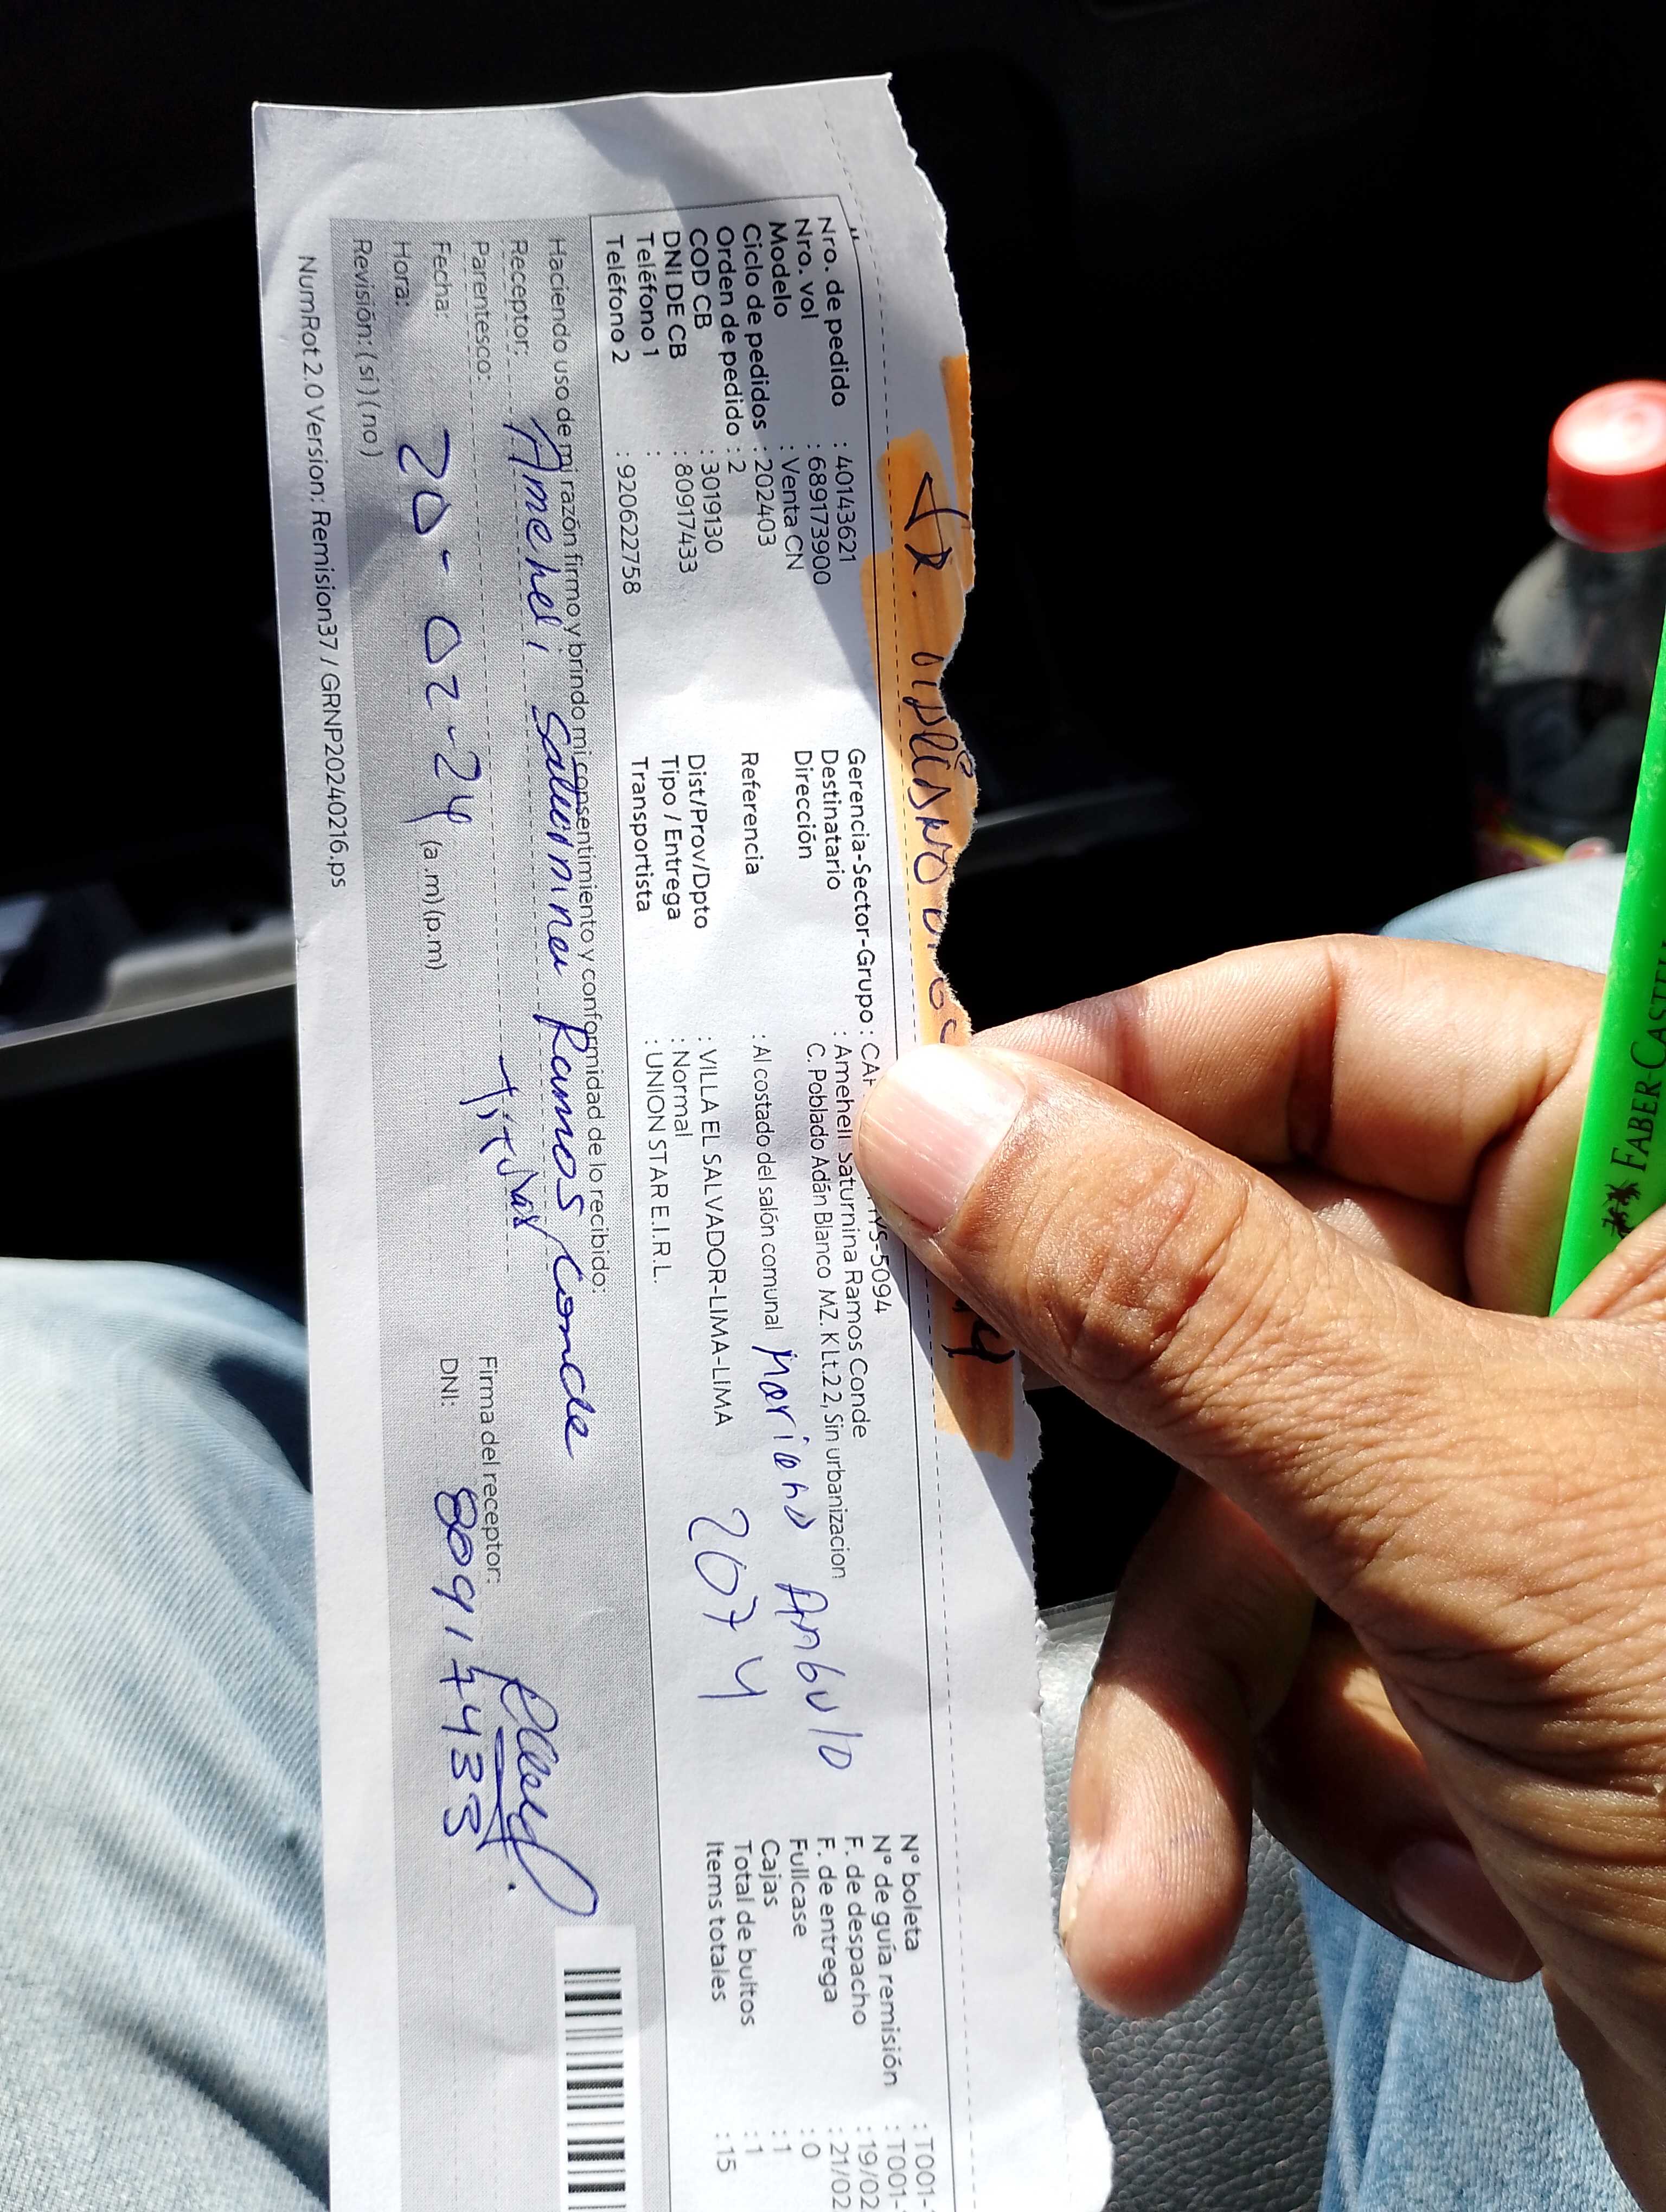 Nro. de pedido : 40143621
Nro. vol : 689173900
Modelo : Venta CN
Ciclo de pedidos : 202403
Orden de pedido : 2
COD CB : 3019130
DNI DE CB : 80917433
Teléfono 1 :
Teléfono 2 : 920622758
Gerencia-Sector-Grupo : CA YS-5094
Destinatario : Ameheli Saturnina Ramos Conde
Dirección C. Poblado Adán Blanco MZ. K Lt.22, Sin urbanizacion
Referencia : Al costado del salón comunal Mariano Angulo
2074
Dist/Prov/Dpto : VILLA EL SALVADOR-LIMA-LIMA
Tipo / Entrega : Normal
Transportista : UNION STAR E.I.R.L.
Nº boleta : T001-
Nº de guía remisión : T001-
F. de despacho : 19/02
F. de entrega : 21/02
Fullcase : 0
Cajas : 1
Total de bultos : 1
Items totales : 15
Haciendo uso de mi razón firmo y brindo mi consentimiento y conformidad de lo recibido:
Receptor: Ameheli Saturnina Ramos Conde
Parentesco: titular
Firma del receptor:
Fecha: 20-02-24
DNI: 80917433
Hora: (a.m) (p.m)
Revisión: ( si ) ( no )
NumRot 2.0 Version: Remision37 / GRNP20240216.ps
FABER-CASTE